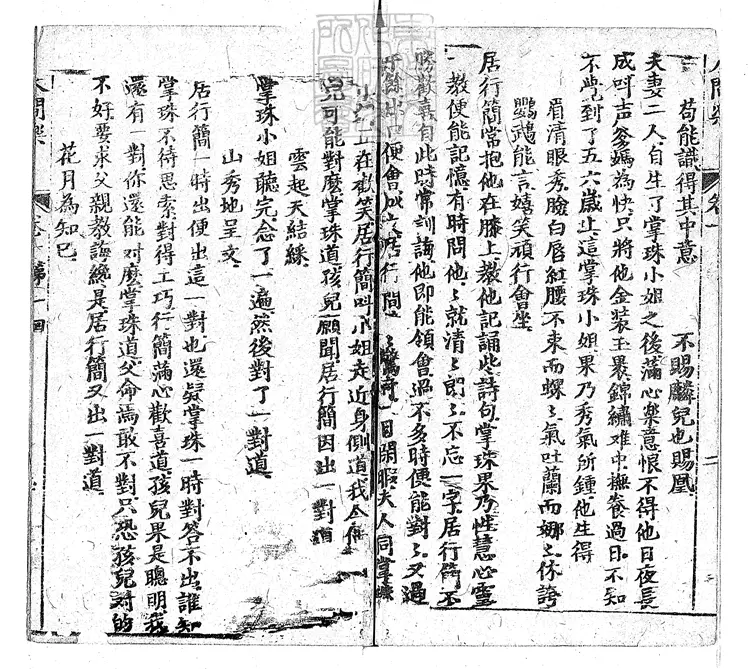 人間樂
卷一
二
苟能識得其中意　不賜麟兒也賜鳳
夫妻二人自生了掌珠小姐之後滿心樂意恨不得他日夜長
成叫声爹媽為快只將他金装玉裹錦繡难中撫養過日不知
不覺到了五六歲上這掌珠小姐果乃秀氣所鍾他生得
眉清眼秀臉白唇紅腰不束而螺〻氣吐蘭而娜〻休誇
鸚鵡能言嬉笑頑行會坐
居行簡常抱他在膝上教他記誦些詩句掌珠果乃性慧心靈
一教便能記憶有時問他〻就清〻朗〻不忘一字居行簡不
勝歡喜自此時常訓誨他即能領會過不多時便能對〻又過
年餘出口便會成文居行簡一日閒暇夫人同掌珠
小姐正在歡笑居行簡叫小姐走近身側道我今有
兒可能對麼掌珠道孩兒願聞居行簡因出一對道
雲起天結綵
掌珠小姐聽完念了一遍然後對了一對道
山秀地呈文
居行簡一時出便出這一對也還疑掌珠一時對答不出誰知
掌珠不待思索對得工巧行簡滿心歡喜道孩兒果是聰明我
還有一對你還能对麼掌珠道父命焉敢不對只恐孩兒对的
不好要求父親教誨纔是居行簡又出一對道
花月為知己
人間樂
卷一
第一回